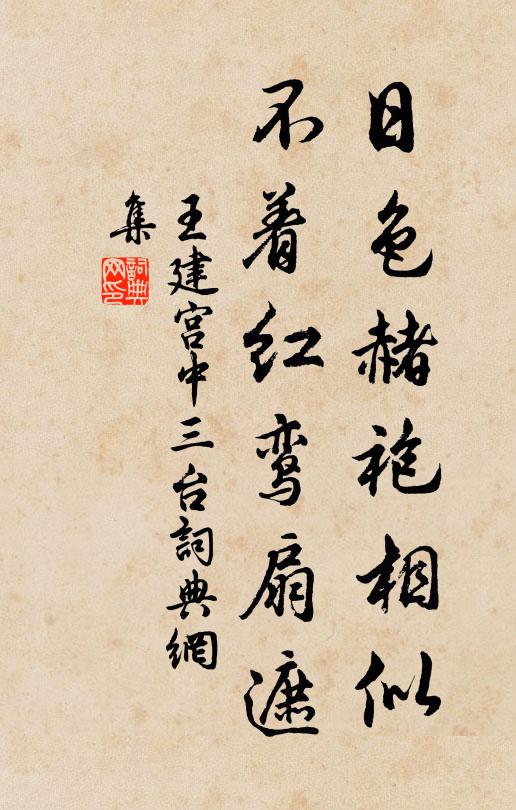 日色赭袍相似
不着红鸾扇遮
王建宫中三台詞典網
集
詞典
网印